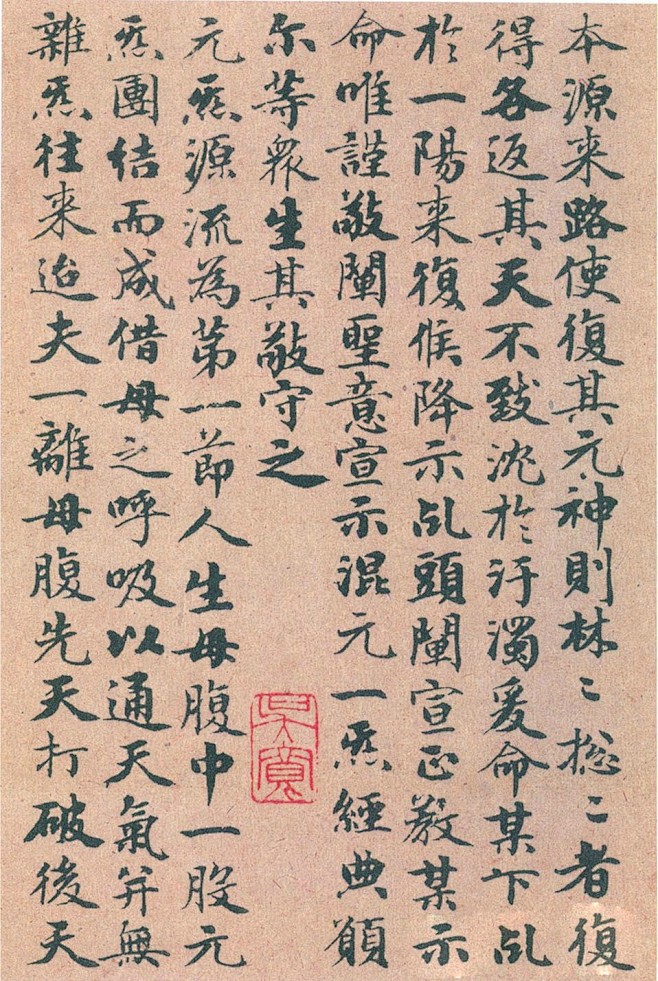 本源来路使復其元神則林〻揔〻者復
得各返其天不致沈於汙濁爰命某下乩
於一陽来復候降示乩頭闡宣正教某示
命唯謹敬闡聖意宣示混元一炁經典願
尔等衆生其敬守之
元炁源流為苐一節人生母腹中一股元
炁團结而成借母之呼吸以通天氣并無
雜炁往来迨夫一離母腹先天打破後天